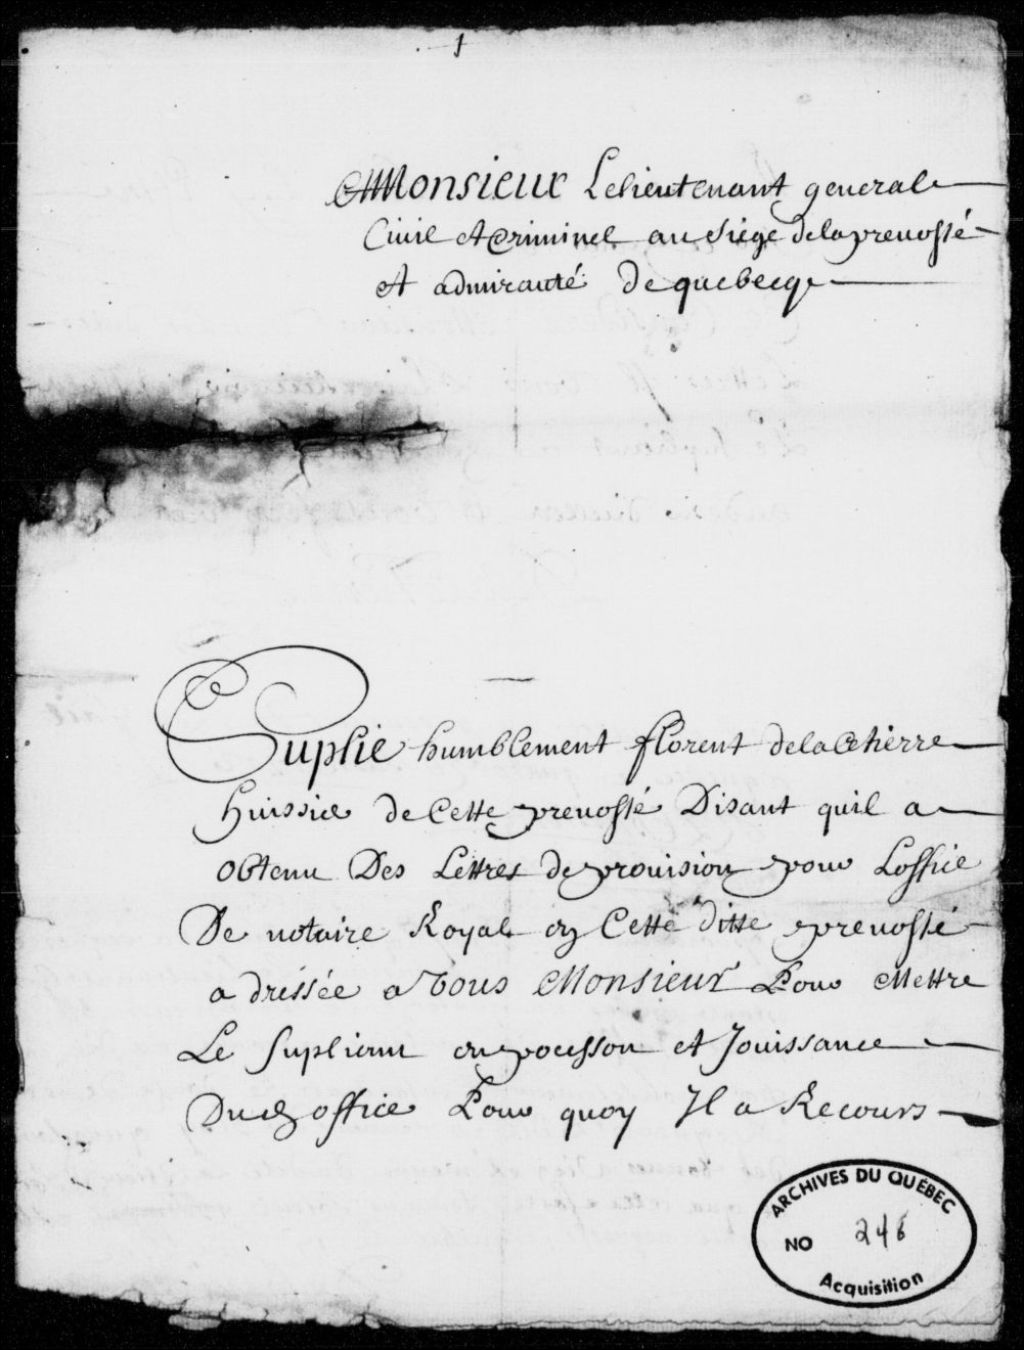 1
A Monsieur Lelieutenant general
Civil et Criminel au Siege dela prevosté
et admirauté De quebecq
Suplie humblement florent delaCetierre
huissier de Cette prevosté Disant quil a
obtenu Des Lettres de provision pour Loffice
De notaire Royal en Cette ditte prevosté
adrissée a Vous Monsieur Pour Mettre
Le Supliant en possesson et Jouissance
Dud office Pour quoy Il a Recours
ARCHIVES DU QUÉBEC
NO 246
Acquisition